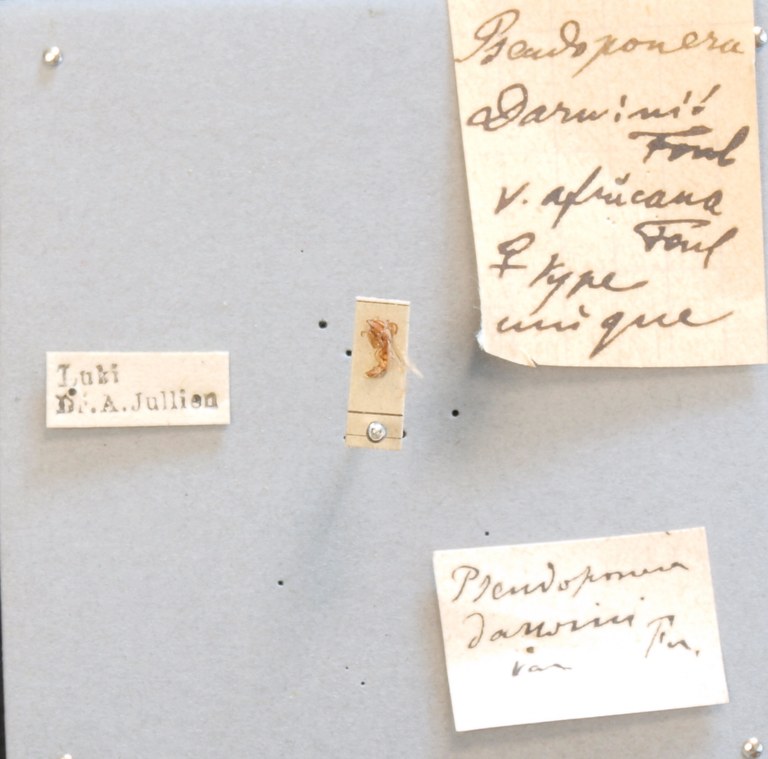 Pseudoponera
Darwinii
Forel
v. africana
Forel
♀ type
unique
Luki
Dr. A. Jullien
Pseudoponera
darwini Fr.
var